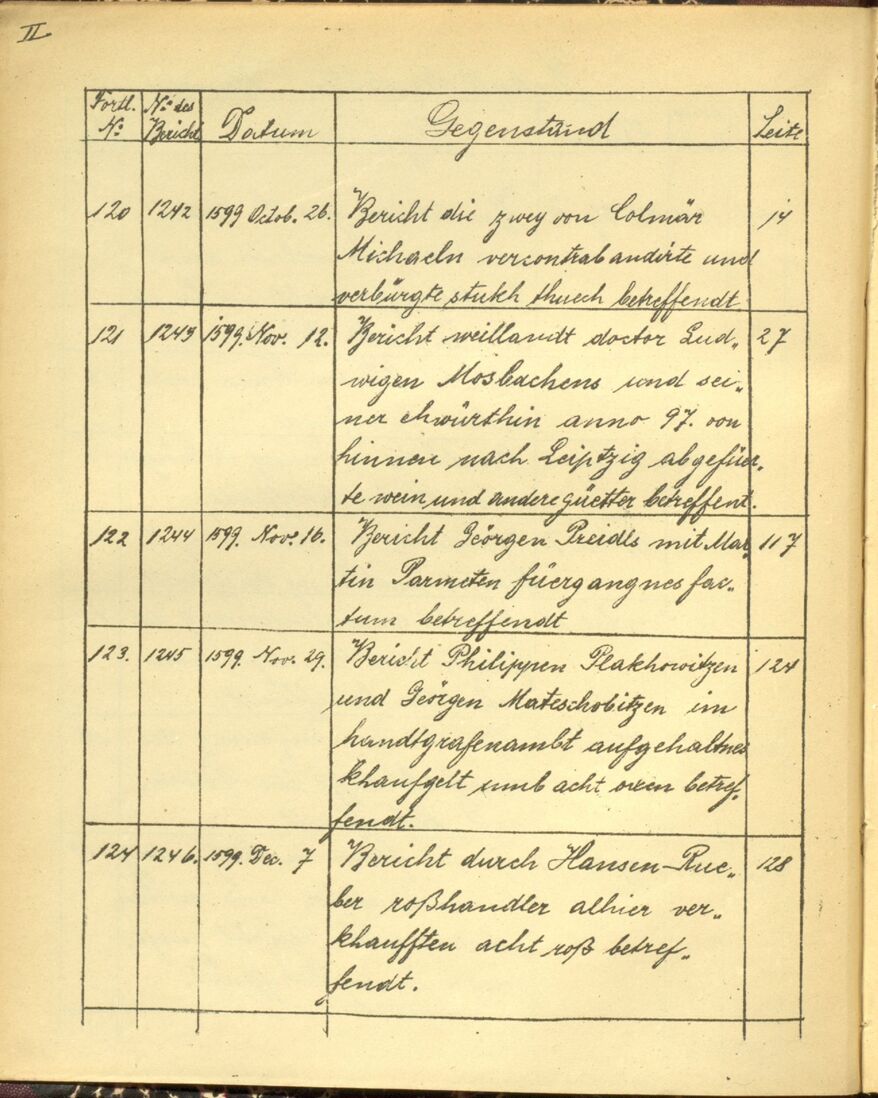 II
Fortl. No. | No. des Bericht | Datum | Gegenstand | Seite
120 | 1242 | 1599 Octob. 26. | Bericht die zwey von Colmär | 14
Michaeln vercontrabandirte und
verbürgte stukh thuech betreffendt
121 | 1243 | 1599. Nov. 12. | Bericht weillandt doctor Lud„ | 27
wigen Mosbachens und sei„
ner ehwürthin anno 97. von
hinnen nach Leiptzig abgefüer„
te wein und andere güetter betreffent.
122 | 1244 | 1599. Nov. 16. | Bericht Geörgen Preidls mit Mar„ | 117
tin Parmeten füergangnes fac„
tum betreffendt
123. | 1245 | 1599. Nov. 29. | Bericht Philippen Plakhowitzen | 124
und Geörgen Mateschobitzen im
handtgrafenambt aufgehaltnes
khaufgelt umb acht oxen betref„
fendt.
124 | 1246. | 1599. Dec. 7 | Bericht durch Hansen Rue„ | 128
ber roßhandler alhier ver„
khaufften acht roß betref„
fendt.